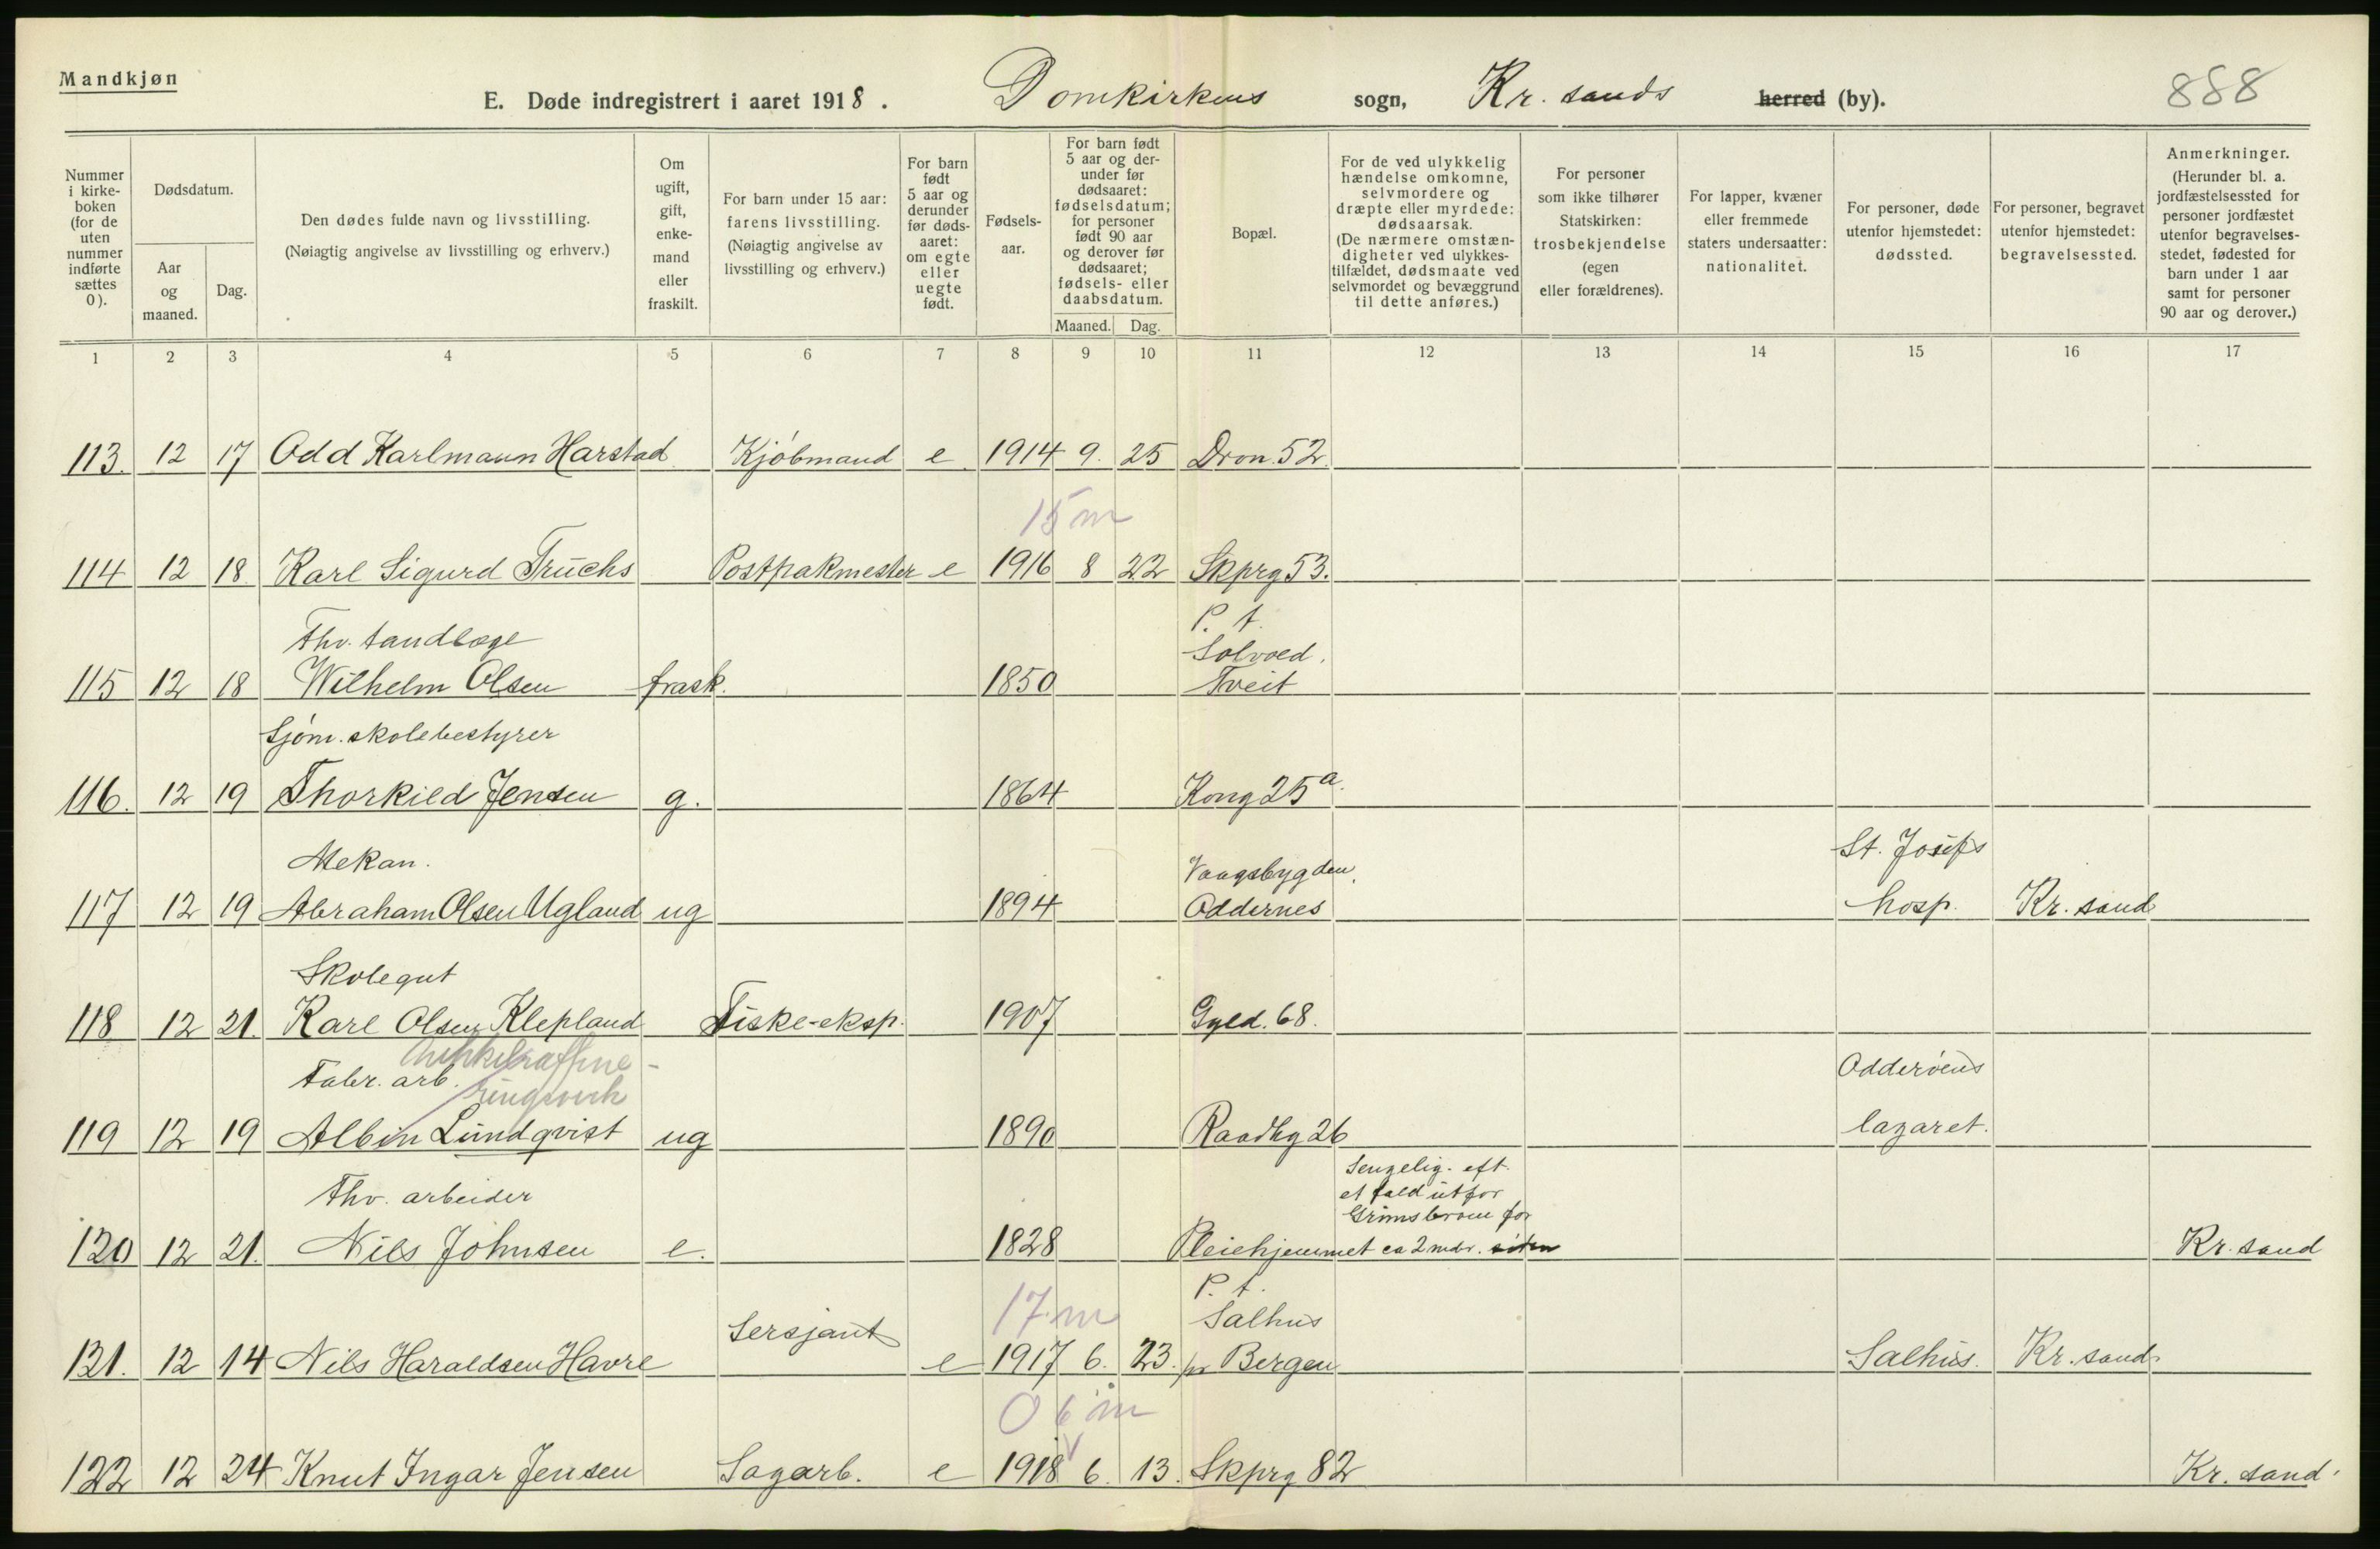 Mandkjøn
E. Døde indregistrert i aaret 1918. Domkirkens sogn, Kr. sands herred (by). 888
Nummer i kirke-boken (for de uten nummer indførte sættes 0).
Dødsdatum.
Aar og maaned.
Dag.
Den dødes fulde navn og livsstilling.
(Nøiagtig angivelse av livsstilling og erhverv.)
Om ugift, gift, enke-mand eller fraskilt.
For barn under 15 aar: farens livsstilling. (Nøiagtig angivelse av livsstilling og erhverv.)
For barn født 5 aar og derunder før døds-aaret: om egte eller uegte født.
Fødsels-aar.
For barn født 5 aar og der-under før dødsaaret: fødselsdatum; for personer født 90 aar og derover før dødsaaret; fødsels- eller daabsdatum.
Maaned. Dag.
Bopæl.
For de ved ulykkelig hændelse omkomne, selvmordere og dræpte eller myrdede: dødsaarsak. (De nærmere omstæn-digheter ved ulykkes-tilfældet, dødsmaate ved selvmordet og bevæggrund til dette anføres.)
For personer som ikke tilhører Statskirken: trosbekjendelse (egen eller forældrenes).
For lapper, kvæner eller fremmede staters undersaatter: nationalitet.
For personer, døde utenfor hjemstedet: dødssted.
For personer, begravet utenfor hjemstedet: begravelsessted.
Anmerkninger. (Herunder bl. a. jordfæstelsessted for personer jordfæstet utenfor begravelses-stedet, fødested for barn under 1 aar samt for personer 90 aar og derover.)
1 2 3 4 5 6 7 8 9 10 11 12 13 14 15 16 17
113. 12 17 Odd Karlmann Harstad Kjöbmand e 1914 9. 25 Dron. 52.
15 m
114 12 18 Karl Sigurd Truchs Postpakmester e 1916 8 22 Skprg 53.
Fhv. tandlæge P. t. Solvold.
115 12 18 Wilhelm Olsen frask. 1850 Tveit
Sjøm. skolebestyrer
116. 12 19 Thorkild Jensen g. 1864 Kong 25a.
Mekan. Vaagsbygden, St. Josefs
117 12 19 Abraham Olsen Ugland ug 1894 Oddernes hosp. Kr. sand
Skolegut
118 12 21. Karl Olsen Klepland Fiske-eksp. 1907 Gyld. 68.
Fabr. arb. nikkelraffine-ringsverk Odderöens
119 12 19 Albin Lundqvist ug 1890 Raadhg 26 lazaret.
Sengelig. eft.
Fhv. arbeider et fald utfor
Grimsbroen for
120 12 21. Nils Johnsen e. 1828 Pleiehjemmet ca 2 mdr. siden Kr. sand
17. m P. t.
Sersjant Salhus
121. 12 14 Nils Haraldsen Havre e 1917 6. 23. pr Bergen Salhus. Kr. sand.
0 6 m
122 12 24 Knut Ingar Jensen Sagarb. e 1918 6. 13. Skprg 82 Kr. sand.